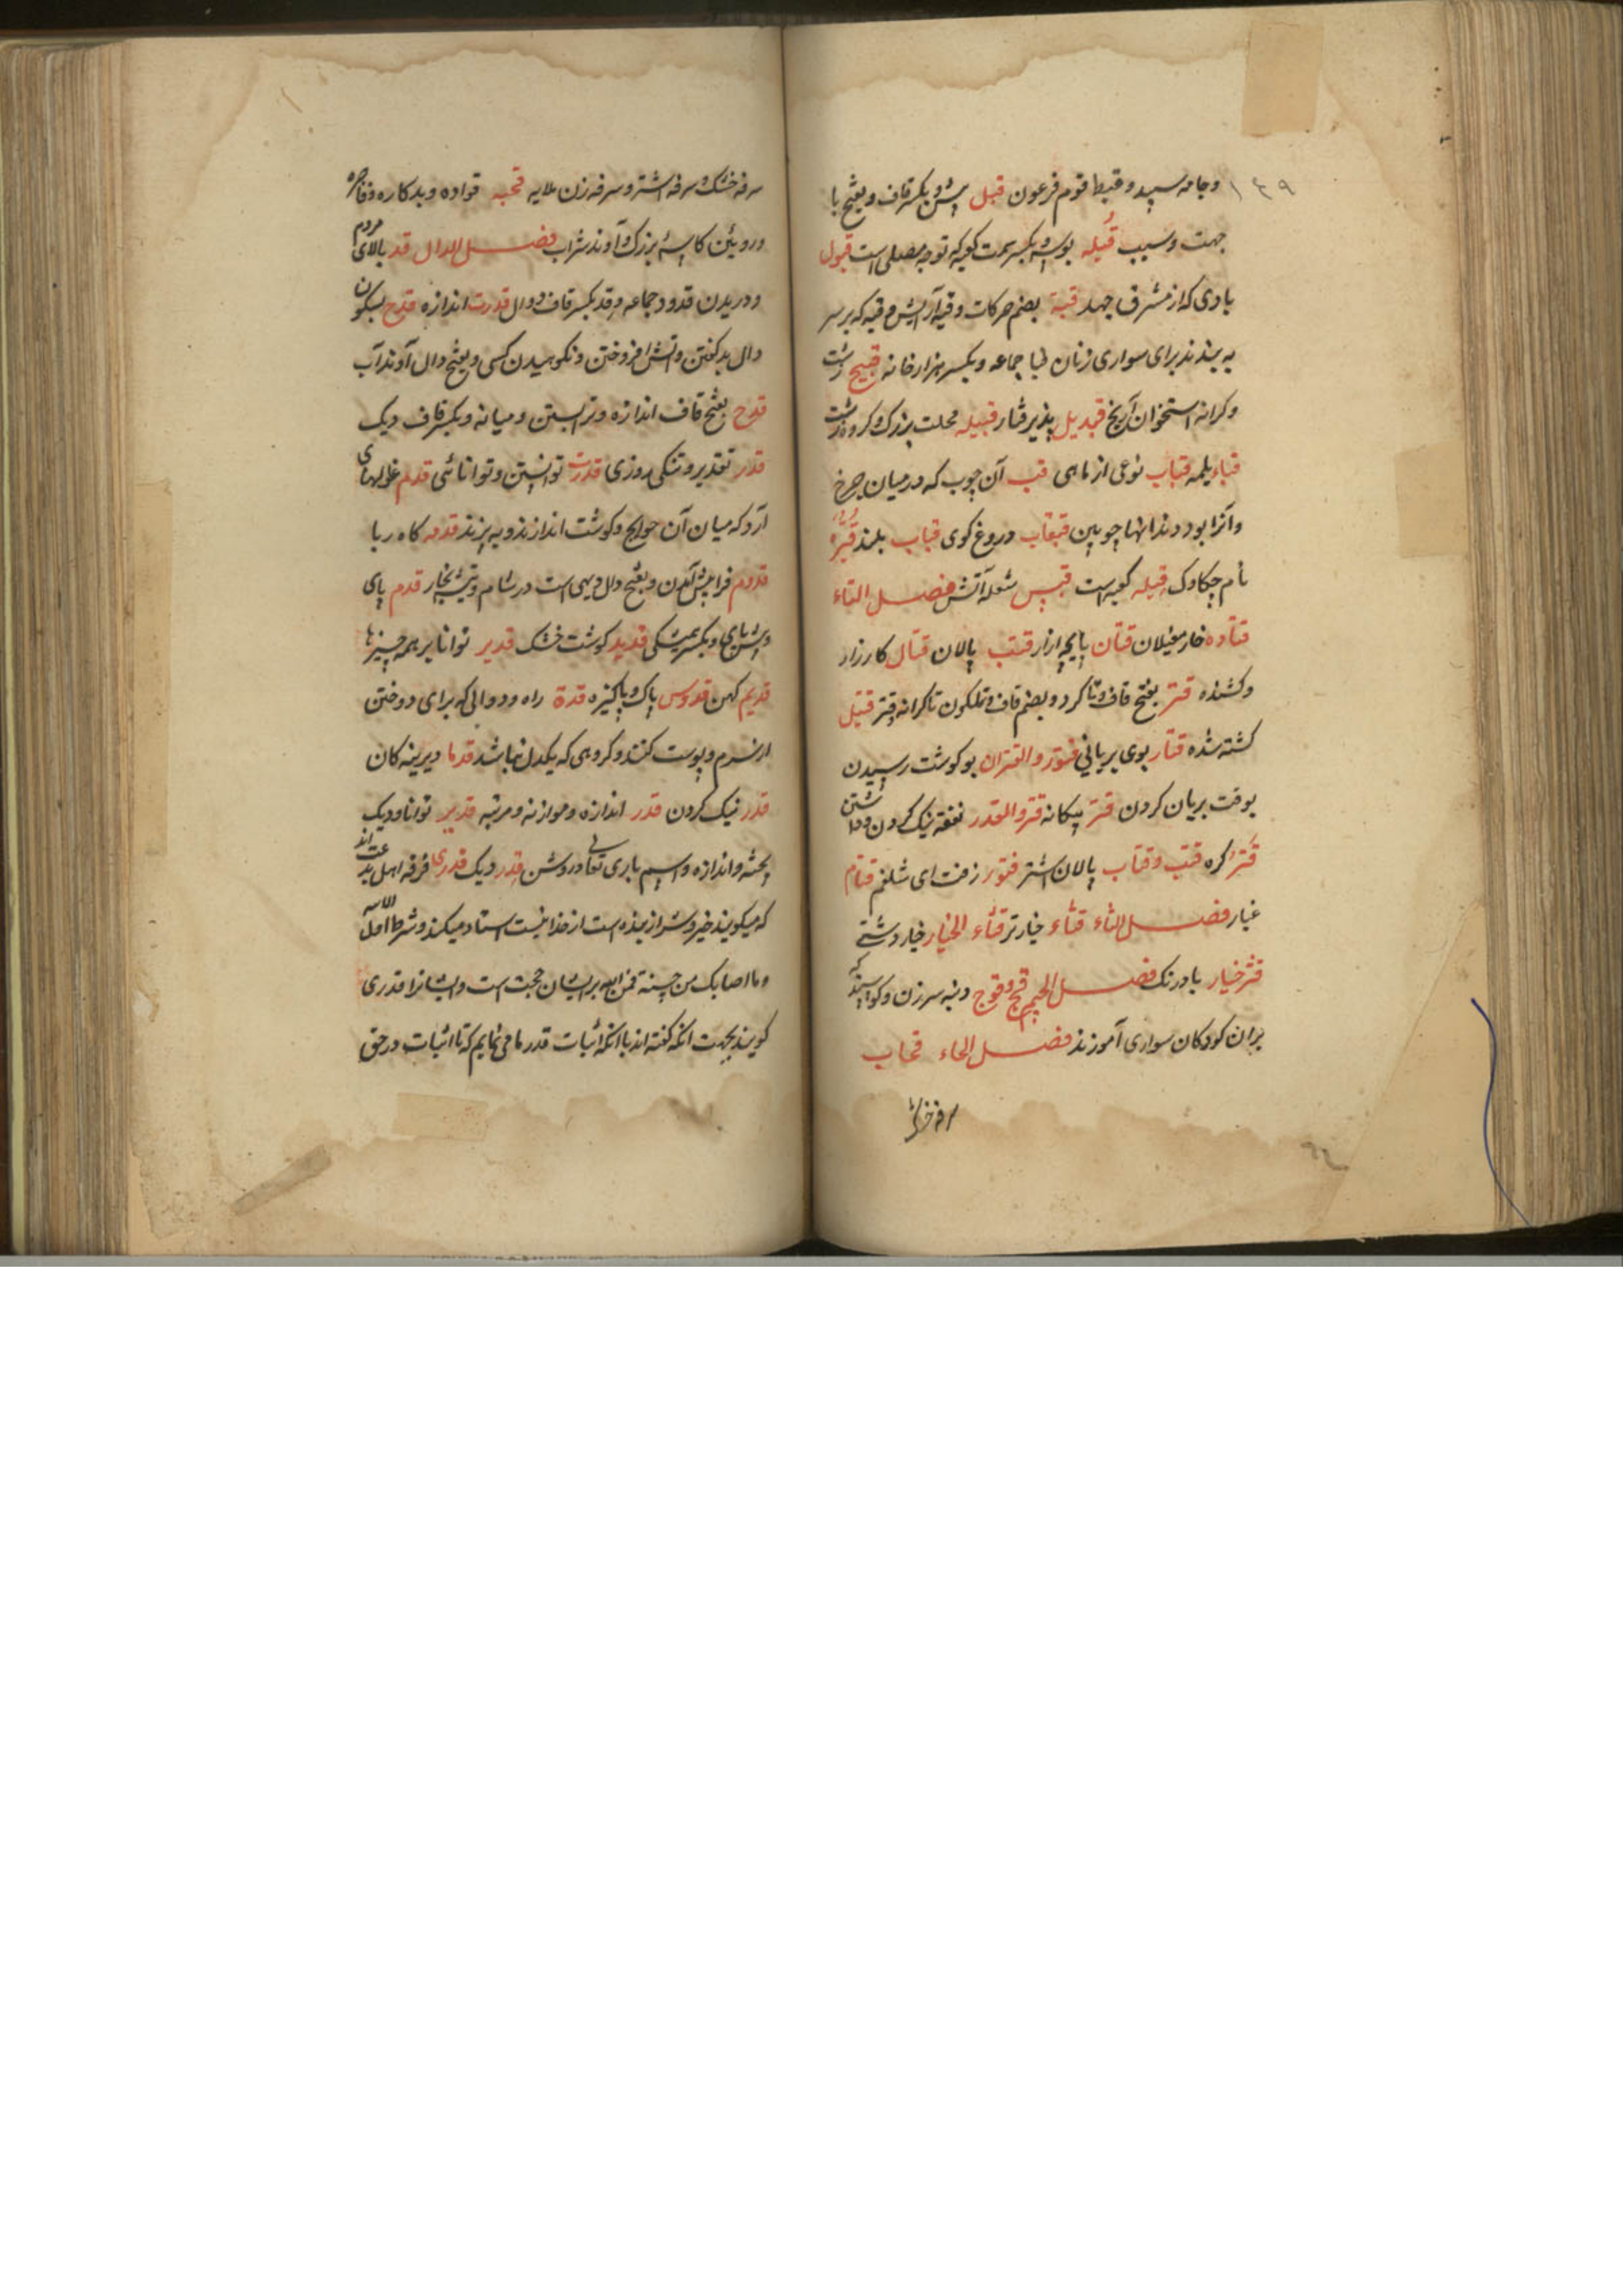 ۱۴۹
وجامه سپید و قبط قوم فرعون قبل پیش و بکسر قاف و بفتح با
جهت و سبب قبله بوسه و بکسر سمت کعبه که توجه مصلی است قبول
بادی که از مشرق جهد قبة بضم حرکات و قبه آرایش و قبه که بر سر
به بندند برای سواری زنان قبا جماعه و یکسر هزار خانه قبیح زشت
و کرانه استخوان آرنج قبدیل پذیر فتار قبیله محلت بزرک و کروه زشت
قباء یلمه قباب نوعی از ماهی قب آن چوب که در میان چرخ
و آنرا بود دندانها چوبین قبقاب دروغ کوی قباب بلند قبره
نام چکاوک قبله کعبه است قبس شعله آتش فصل التاء
قتاده خار مغیلان قتان پایچه ازار قتب پالان قتال کارزار
و کشنده قتر بفتح قاف و تا کرد و بضم قاف و تا کرانه قتر قتیل
کشته شده قتار بوی بریانی قتور و القتران بو کوشت رسیدن
بوقت بریان کردن قتر پیکانه قتر و القدر نفقه نیک کردن و داشتن
قتر کره قتب وقتاب پالان اشتر قتور زفت ای شلغم قتام
غبار فصل الثاء قثاء خیار تر قثاء الخیار خیار دشتی
قثر خیار بادرنک فصل الجیم قج وقوج دنبه سر زن و کوسپند که
بران کودکان سواری آموزند فصل الحاء قحاب
سرفه خشک
سرفه خشک و سرفه اشتر و سرفه زن ملایه قحبه قواده و بدکاره و فاجره
و روئین کاسهٔ بزرک و آوند شراب فصل الدال قد بالای مردم
و دریدن قدود جماعه و قد بکسر قاف دوال قدرت اندازه قدح بسکون
دال بد کفتن و آتش افروختن و نکوهیدن کسی و بفتح دال آوند آب
قدح بفتح قاف اندازه و تر بستن و میانه و بکسر قاف دیک
قدر تقدیر و تنکی روزی قدرت توانستن و توانائی قدم غولهای
آرد که میان آن حوایج و کوشت اندازند و به پزند قدمه کاه ربا
قدوم فراپیش آمدن و بفتح دال دیهی است در شام و تیشه نجار قدم پای
و پیش پای و بکسر پیشکی قدید کوشت خشک قدیر توانا بر همه چیزها
قدیم کهن قدوس پاک و پاکیزه قدة راه و دوالی که برای دوختن
از نرم و پوست کنند و کروهی که یکدل نباشد قدما دیرینه کان
قدر نیک کردن قدر اندازه و موازنه و مرتبه قدیر توانا و دیک
پخته و اندازه و اسم باری تعالی در روشن قدر دیک قدری فرقه اهل بدعت اند
که میکویند خیر و شر از بنده است از خدا نیست استاد میکند و شرط
و ما اصابک من حسنة فمن الله بر ایشان حجت است و ایشانرا قدری
کویند بجهت انکه کفته اند باانکه اثبات قدر ما می نمایم که تا اثبات در حق